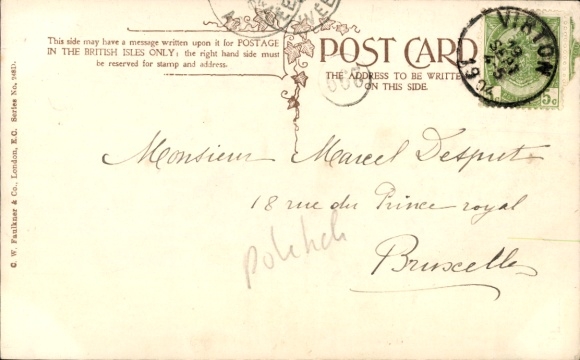 This side may have a message written upon it for POSTAGE
IN THE BRITISH ISLES ONLY; the right hand side must
be reserved for stamp and address.
POST CARD
THE ADDRESS TO BE WRITTEN
ON THIS SIDE.
VIRTON
SEPT
5c
Monsieur Marcel Despret
18 rue du Prince royal
Bruxelles
C. W. Faulkner & Co., London, E.C. Series No. 268D.